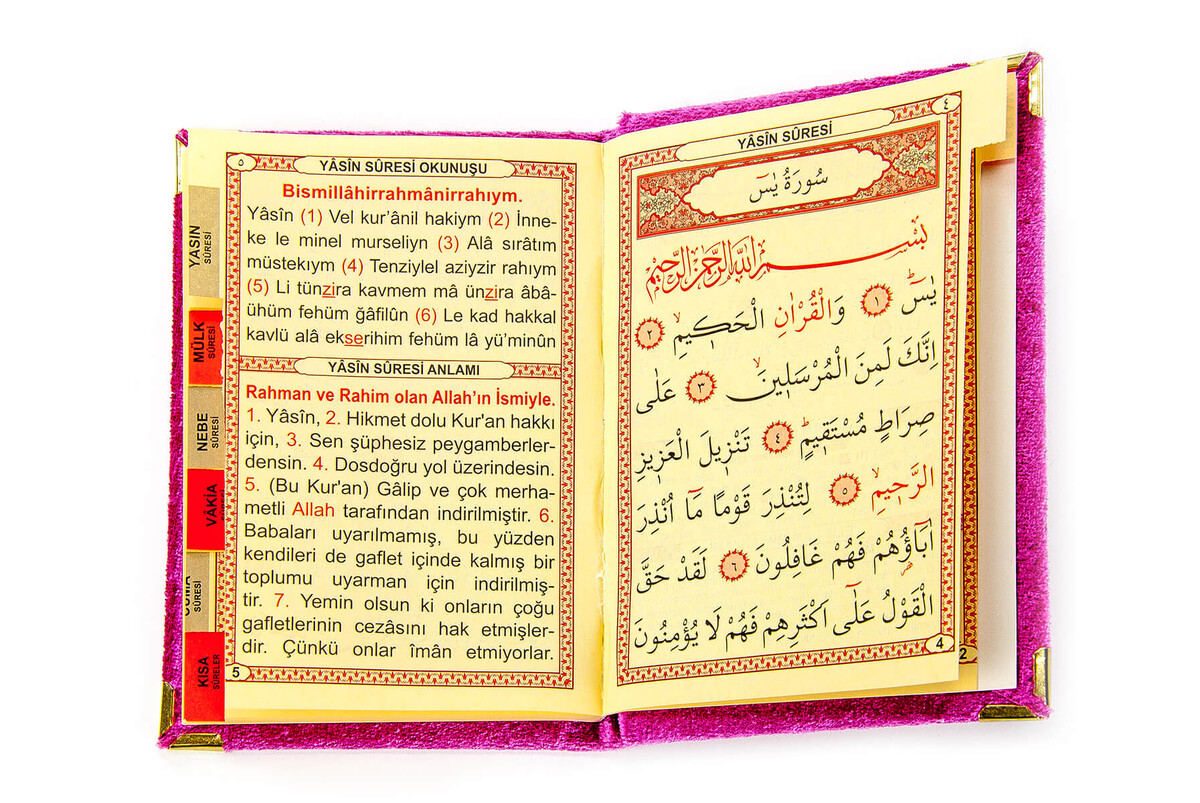 ٤
YÂSÎN SÛRESİ
سُورَةُ يٰسٓ
بِسْمِ اللّٰهِ الرَّحْمٰنِ الرَّحِيمِ
يٰسٓ ١ وَالْقُرْاٰنِ الْحَكِيمِ ٢
اِنَّكَ لَمِنَ الْمُرْسَلِينَ ٣ عَلٰى
صِرَاطٍ مُسْتَقِيمٍ ٤ تَنْزِيلَ الْعَزِيزِ
الرَّحِيمِ ٥ لِتُنْذِرَ قَوْمًا مَٓا اُنْذِرَ
اٰبَٓاؤُهُمْ فَهُمْ غَافِلُونَ ٦ لَقَدْ حَقَّ
الْقَوْلُ عَلٰٓى اَكْثَرِهِمْ فَهُمْ لَا يُؤْمِنُونَ
4
2
٥
YÂSÎN SÛRESİ OKUNUŞU
Bismillâhirrahmânirrahıym.
Yâsîn (1) Vel kur’ânil hakiym (2) İnne-
ke le minel murseliyn (3) Alâ sırâtım
müstekıym (4) Tenziylel aziyzir rahıym
(5) Li tünzira kavmem mâ ünzira âbâ-
ühüm fehüm ğâfilûn (6) Le kad hakkal
kavlü alâ ekserihim fehüm lâ yü’minûn
YÂSÎN SÛRESİ ANLAMI
Rahman ve Rahim olan Allah’ın İsmiyle.
1. Yâsîn, 2. Hikmet dolu Kur'an hakkı
için, 3. Sen şüphesiz peygamberler-
densin. 4. Dosdoğru yol üzerindesin.
5. (Bu Kur'an) Gâlip ve çok merha-
metli Allah tarafından indirilmiştir. 6.
Babaları uyarılmamış, bu yüzden
kendileri de gaflet içinde kalmış bir
toplumu uyarman için indirilmiş-
tir. 7. Yemin olsun ki onların çoğu
gafletlerinin cezâsını hak etmişler-
dir. Çünkü onlar îmân etmiyorlar.
5
YASIN
SÛRESİ
MÜLK
SÛRESİ
NEBE
SÛRESİ
VÂKIA
SÛRESİ
KISA
SÛRELER